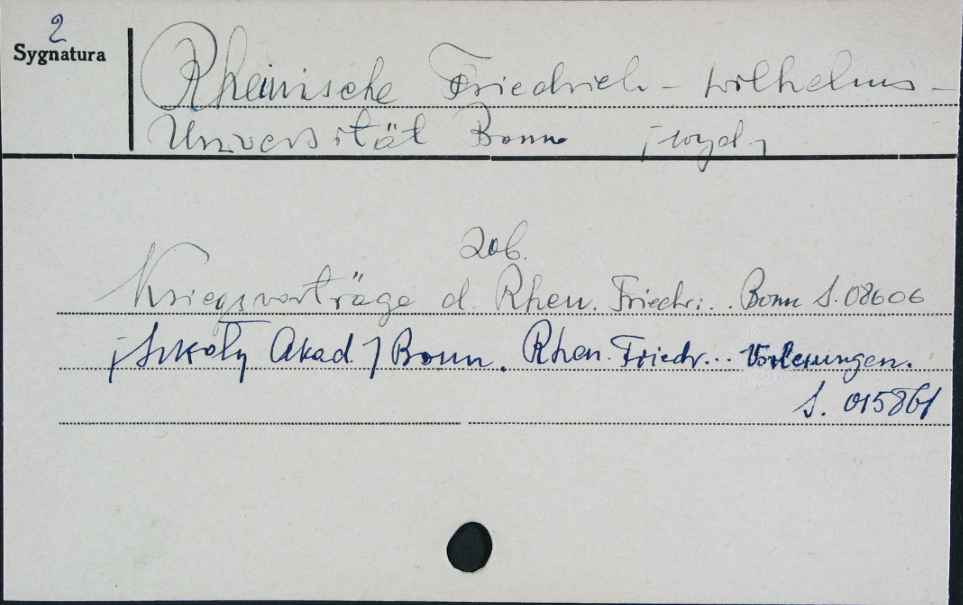 2
Sygnatura
Rheinische Friedrich-Wilhelms-
Universität Bonn [wyd.]
zob.
Kriegsvorträge d. Rhein. Friedr... Bonn S. 08606
[Szkoły Akad.] Bonn. Rhein. Friedr... Vorlesungen.
S. 015861